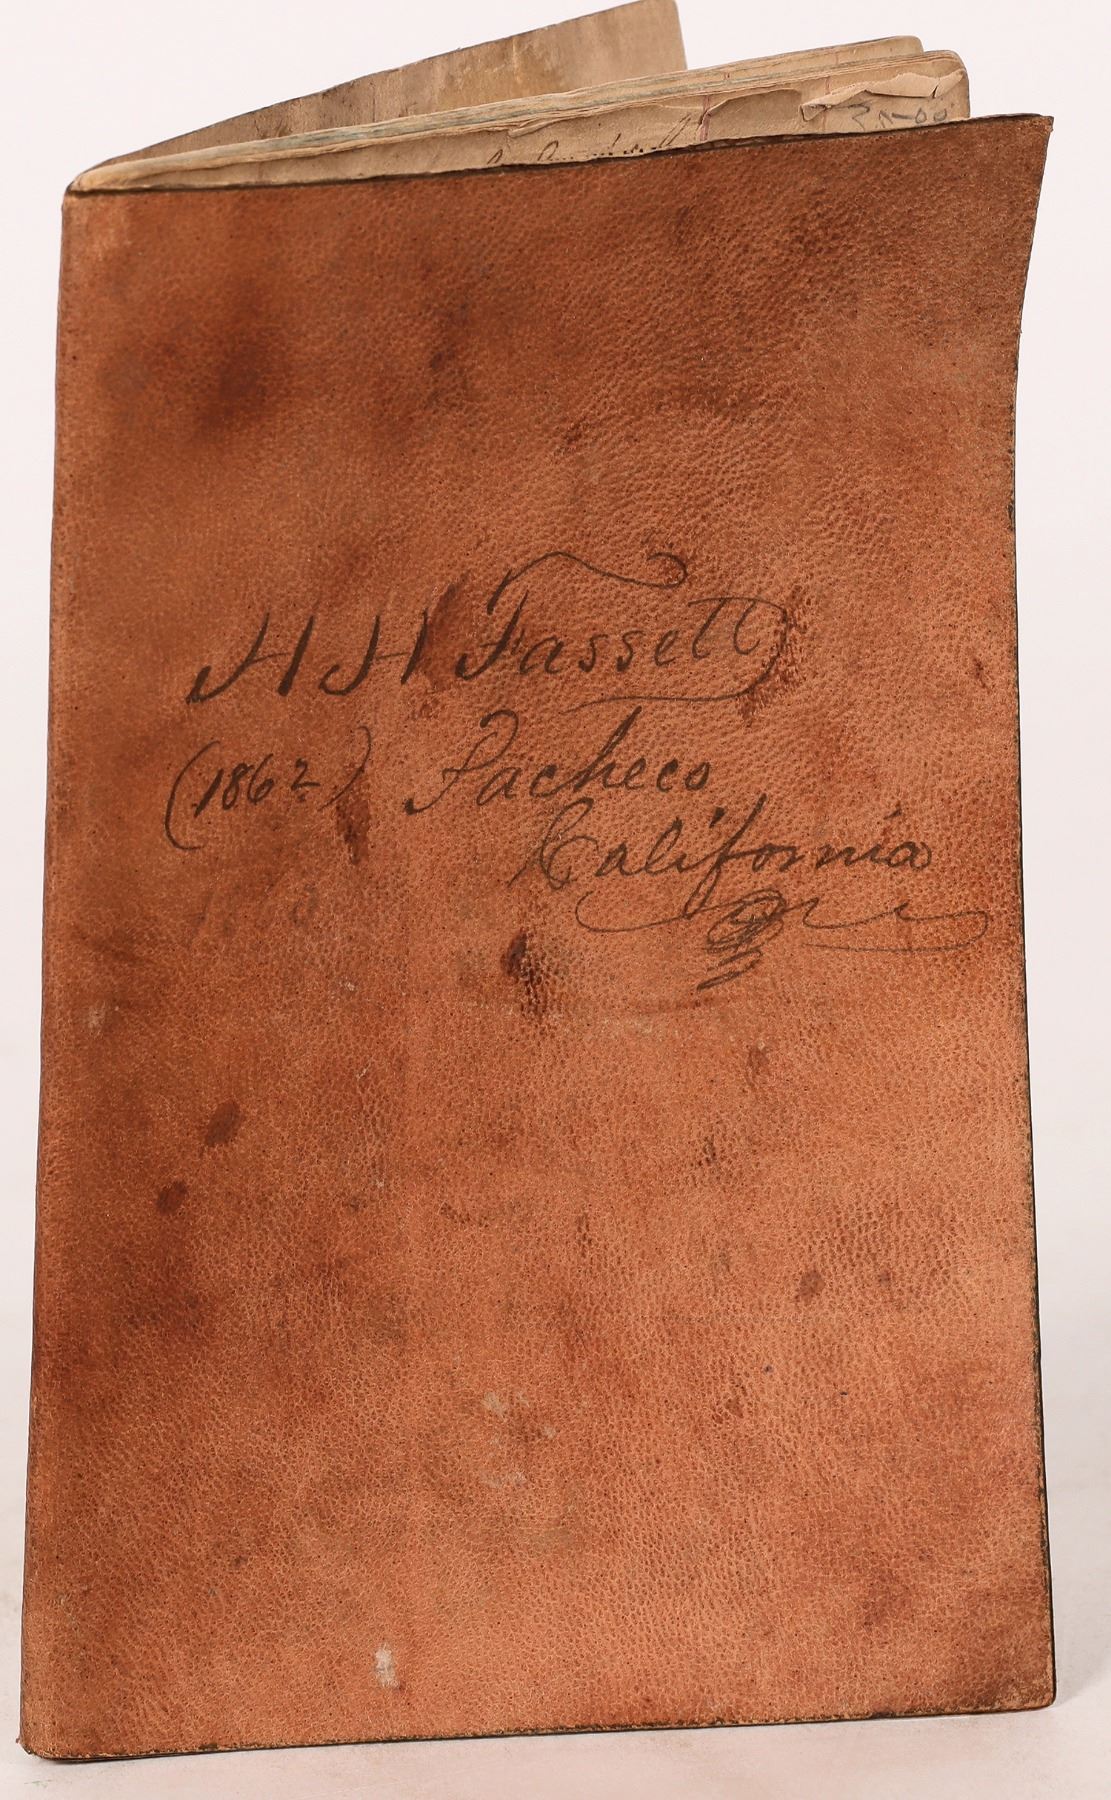 H H Fassett
(1862) Pacheco
California